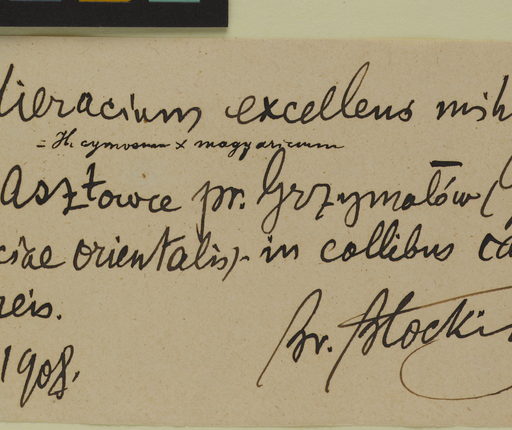 Hieracium excellens mih
= H. cymosum x magyaricum
asztowce pr. Grzymałów (
ciae orientalis) - in collibus ca
reis.
1908.
Br. Błocki